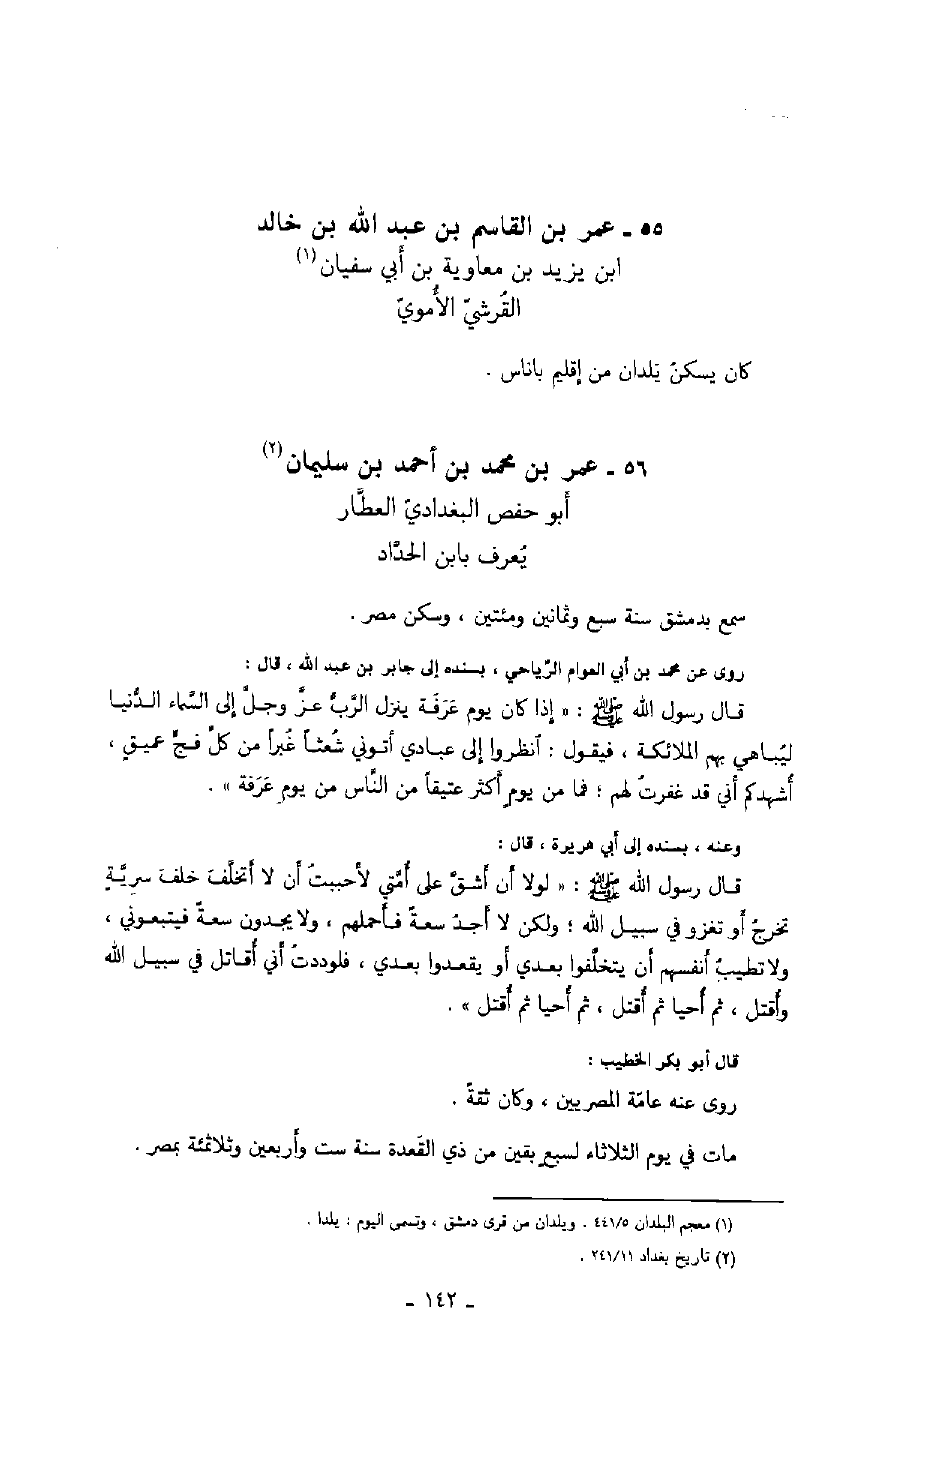 ٥٥ ـ عمر بن القاسم بن عبد الله بن خالد
ابن يزيد بن معاوية بن أبي سفيان(١)
القُرشيّ الأُمويّ
كان يسكنُ يَلدان من إقليم باناس .
٥٦ ـ عمر بن محمد بن أحمد بن سليمان(٢)
أبو حفص البغداديّ العطَّار
يُعرف بابن الحدَّاد
سمع بدمشق سنة سبع وثمانين ومئتين ، وسكن مصر .
روى عن محمد بن أبي العوام الرِّياحي ، بسنده إلى جابر بن عبد الله ، قال :
قال رسول الله ﷺ : « إذا كان يوم عَرَفَة ينزل الرَّبُّ عزَّ وجلَّ إلى السَّماء الدُّنيا
ليُباهي بهم الملائكة ، فيقول : اَنظروا إلى عبادي أتوني شُعثاً غُبراً من كلِّ فجٍّ عميقٍ ،
أُشهدكم أني قد غفرتُ لهم ؛ فما من يومٍ أكثر عتيقاً من النَّاس من يوم عَرَفة » .
وعنه ، بسنده إلى أبي هريرة ، قال :
قال رسول الله ﷺ : « لولا أن أشقَّ على أُمَّتي لأحببتُ أن لا أتخلَّفَ خلفَ سريَّةٍ
تخرجُ أو تغزو في سبيل الله ؛ ولكن لا أجدُ سعةً فأحملهم ، ولا يجدون سعةً فيتبعوني ،
ولا تطيبُ أنفسهم أن يتخلَّفوا بعدي أو يقعدوا بعدي ، فلوددتُ أني أُقاتل في سبيل الله
وأُقتل ، ثم أُحيا ثم أُقتل ، ثم أُحيا ثم أُقتل » .
قال أبو بكر الخطيب :
روى عنه عامّة المصريين ، وكان ثقةً .
مات في يوم الثلاثاء لسبعٍ بقين من ذي القَعدة سنة ست وأربعين وثلاثمئة بمصر .
(١) معجم البلدان ٤٤١/٥ . ويلدان من قرى دمشق ، وتسمى اليوم : يلدا .
(٢) تاريخ بغداد ٢٤١/١١ .
ـ ١٤٢ ـ